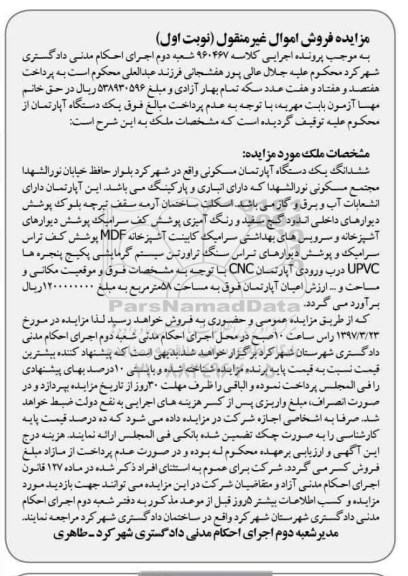 مزایده فروش اموال غیرمنقول (نوبت اول)
به موجب پرونده اجرایی کلاسه ۹۶۰۴۶۷ شعبه دوم اجرای احکام مدنی دادگستری
شهرکرد محکوم علیه جلال عالی پور هفشجانی فرزند عبدالعلی محکوم است به پرداخت
هفتصد و هفتاد و هفت عدد سکه تمام بهار آزادی و مبلغ ۵۳۸۹۳۰۵۹۶ ریال در حق خانم
مهسا آزمون بابت مهریه، با توجه به عدم پرداخت مبالغ فوق یک دستگاه آپارتمان از
محکوم علیه توقیف گردیده است که مشخصات ملک به این شرح است:
مشخصات ملک مورد مزایده:
ششدانگ یک دستگاه آپارتمان مسکونی واقع در شهرکرد بلوار حافظ خیابان نورالشهدا
مجتمع مسکونی نورالشهدا که دارای انباری و پارکینگ می باشد. این آپارتمان دارای
انشعابات آب و برق و گاز می باشد. اسکلت ساختمان آرمه سقف تیرچه بلوک پوشش
دیوارهای داخلی اندود گچ سفید و رنگ آمیزی پوشش کف سرامیک پوشش دیوارهای
آشپزخانه و سرویس های بهداشتی سرامیک کابینت آشپزخانه MDF پوشش کف تراس
سرامیک و پوشش دیوارهای تراس سنگ تراورتن سیستم گرمایشی پکیج پنجره ها
UPVC درب ورودی آپارتمان CNC با توجه به مشخصات فوق و موقعیت مکانی و
مساحت و ... ارزش اعیان آپارتمان فوق به مساحت ۵۸مترمربع به مبلغ ۱۲۰۰۰۰۰۰۰۰ریال
برآورد می گردد.
که از طریق مزایده عمومی و حضوری به فروش خواهد رسید لذا مزایده در مورخ
۱۳۹۷/۳/۲۳ راس ساعت ۱۰صبح در محل اجرای احکام مدنی شعبه دوم اجرای احکام مدنی
دادگستری شهرستان شهرکرد برگزار خواهد شد بدیهی است که پیشنهاد کننده بیشترین
قیمت نسبت به قیمت پایه برنده مزایده شناخته شده و بایستی ۱۰درصد بهای پیشنهادی
را فی المجلس پرداخت نموده و الباقی را ظرف مهلت ۳۰روز از تاریخ مزایده بپردازد و در
صورت انصراف، مبلغ واریزی پس از کسر هزینه های اجرایی به نفع دولت ضبط خواهد
شد. صرفا به اشخاصی اجازه شرکت در مزایده داده می شود که ده درصد قیمت پایه
کارشناسی را به صورت چک تضمین شده بانکی فی المجلس ارائه نمایند. هزینه درج
این آگهی و ارزیابی برعهده محکوم له بوده و در صورت عدم پرداخت از مازاد مبلغ
فروش کسر می گردد. شرکت برای عموم به استثنای افراد ذکر شده در ماده ۱۲۷ قانون
اجرای احکام مدنی آزاد و متقاضیان شرکت در این مزایده می توانند جهت بازدید مورد
مزایده و کسب اطلاعات بیشتر ۵روز قبل از موعد مذکور به دفتر شعبه دوم اجرای احکام
مدنی دادگستری شهرستان شهرکرد واقع در ساختمان دادگستری شهرکرد مراجعه نمایند.
مدیر شعبه دوم اجرای احکام مدنی دادگستری شهرکرد ـ طاهری
ParsNamadData